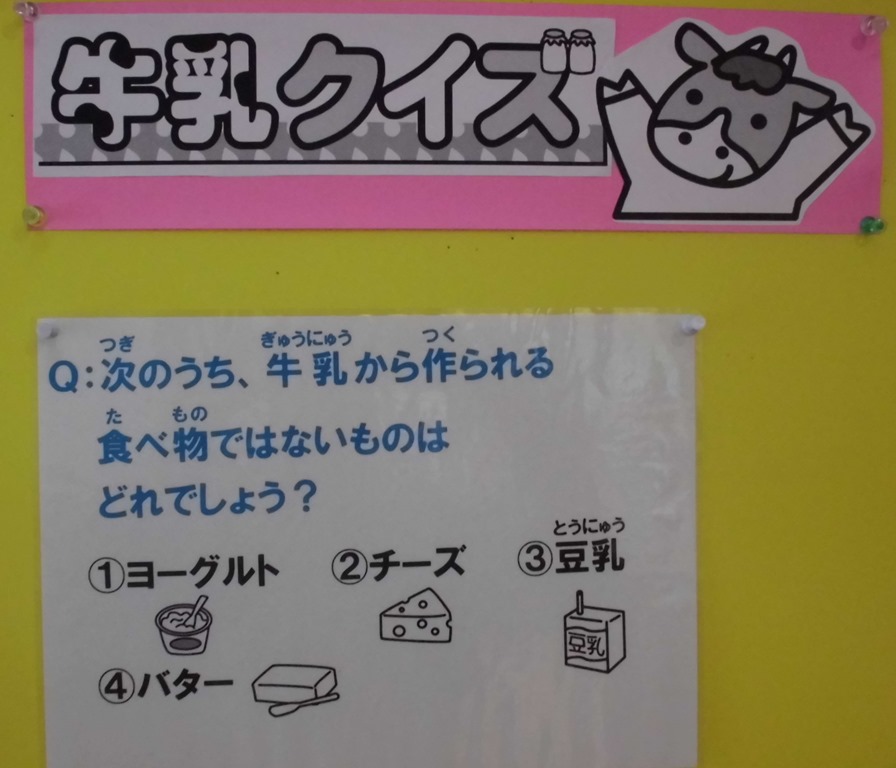 牛乳クイズ
つぎ ぎゅうにゅう つく
Q:次のうち、牛乳から作られる
た もの
食べ物ではないものは
どれでしょう？
とうにゅう
①ヨーグルト ②チーズ ③豆乳
豆乳
④バター